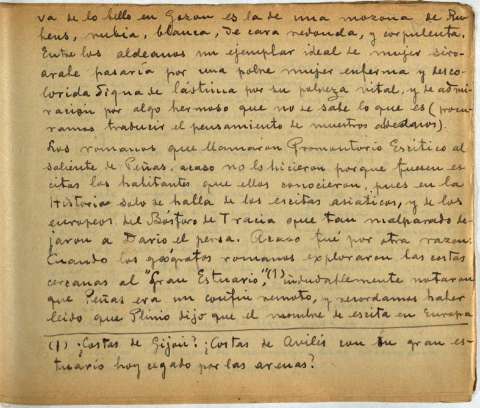 va de lo bello en Gozon es la de una mozona de Ru-
bens, rubia, blanca, de cara redonda, y corpulenta.
Entre los aldeanos un ejemplar ideal de mujer siro-
arabe pasaría por una pobre mujer enferma y desco-
lorida digna de lástima por su pobreza vital, y de admi-
ración por algo hermoso que no se sabe lo que es (procu-
ramos traducir el pensamiento de nuestros aldeanos).
Los romanos, que llamaron Promontorio Escitico al
saliente de Peñas, acaso no lo hicieron porque fuesen es-
citas los habitantes que ellos conocieron, pues en la
Historia solo se halla de los escitas asiaticos, y de los
europeos del Bósforo de Tracia que tan malparado de-
jaron a Dario el persa. Acaso fué por otra razon.
Cuando los geógrafos romanos exploraron las costas
cercanas al "Gran Estuario,"(1) indudablemente notaron
que Peñas era un confin remoto, y recordamos haber
leido que Plinio dijo que el nombre de escita en Europa
(1) ¿Costas de Gijon? ¿Costas de Avilés con su gran es-
tuario hoy cegado por las arenas?